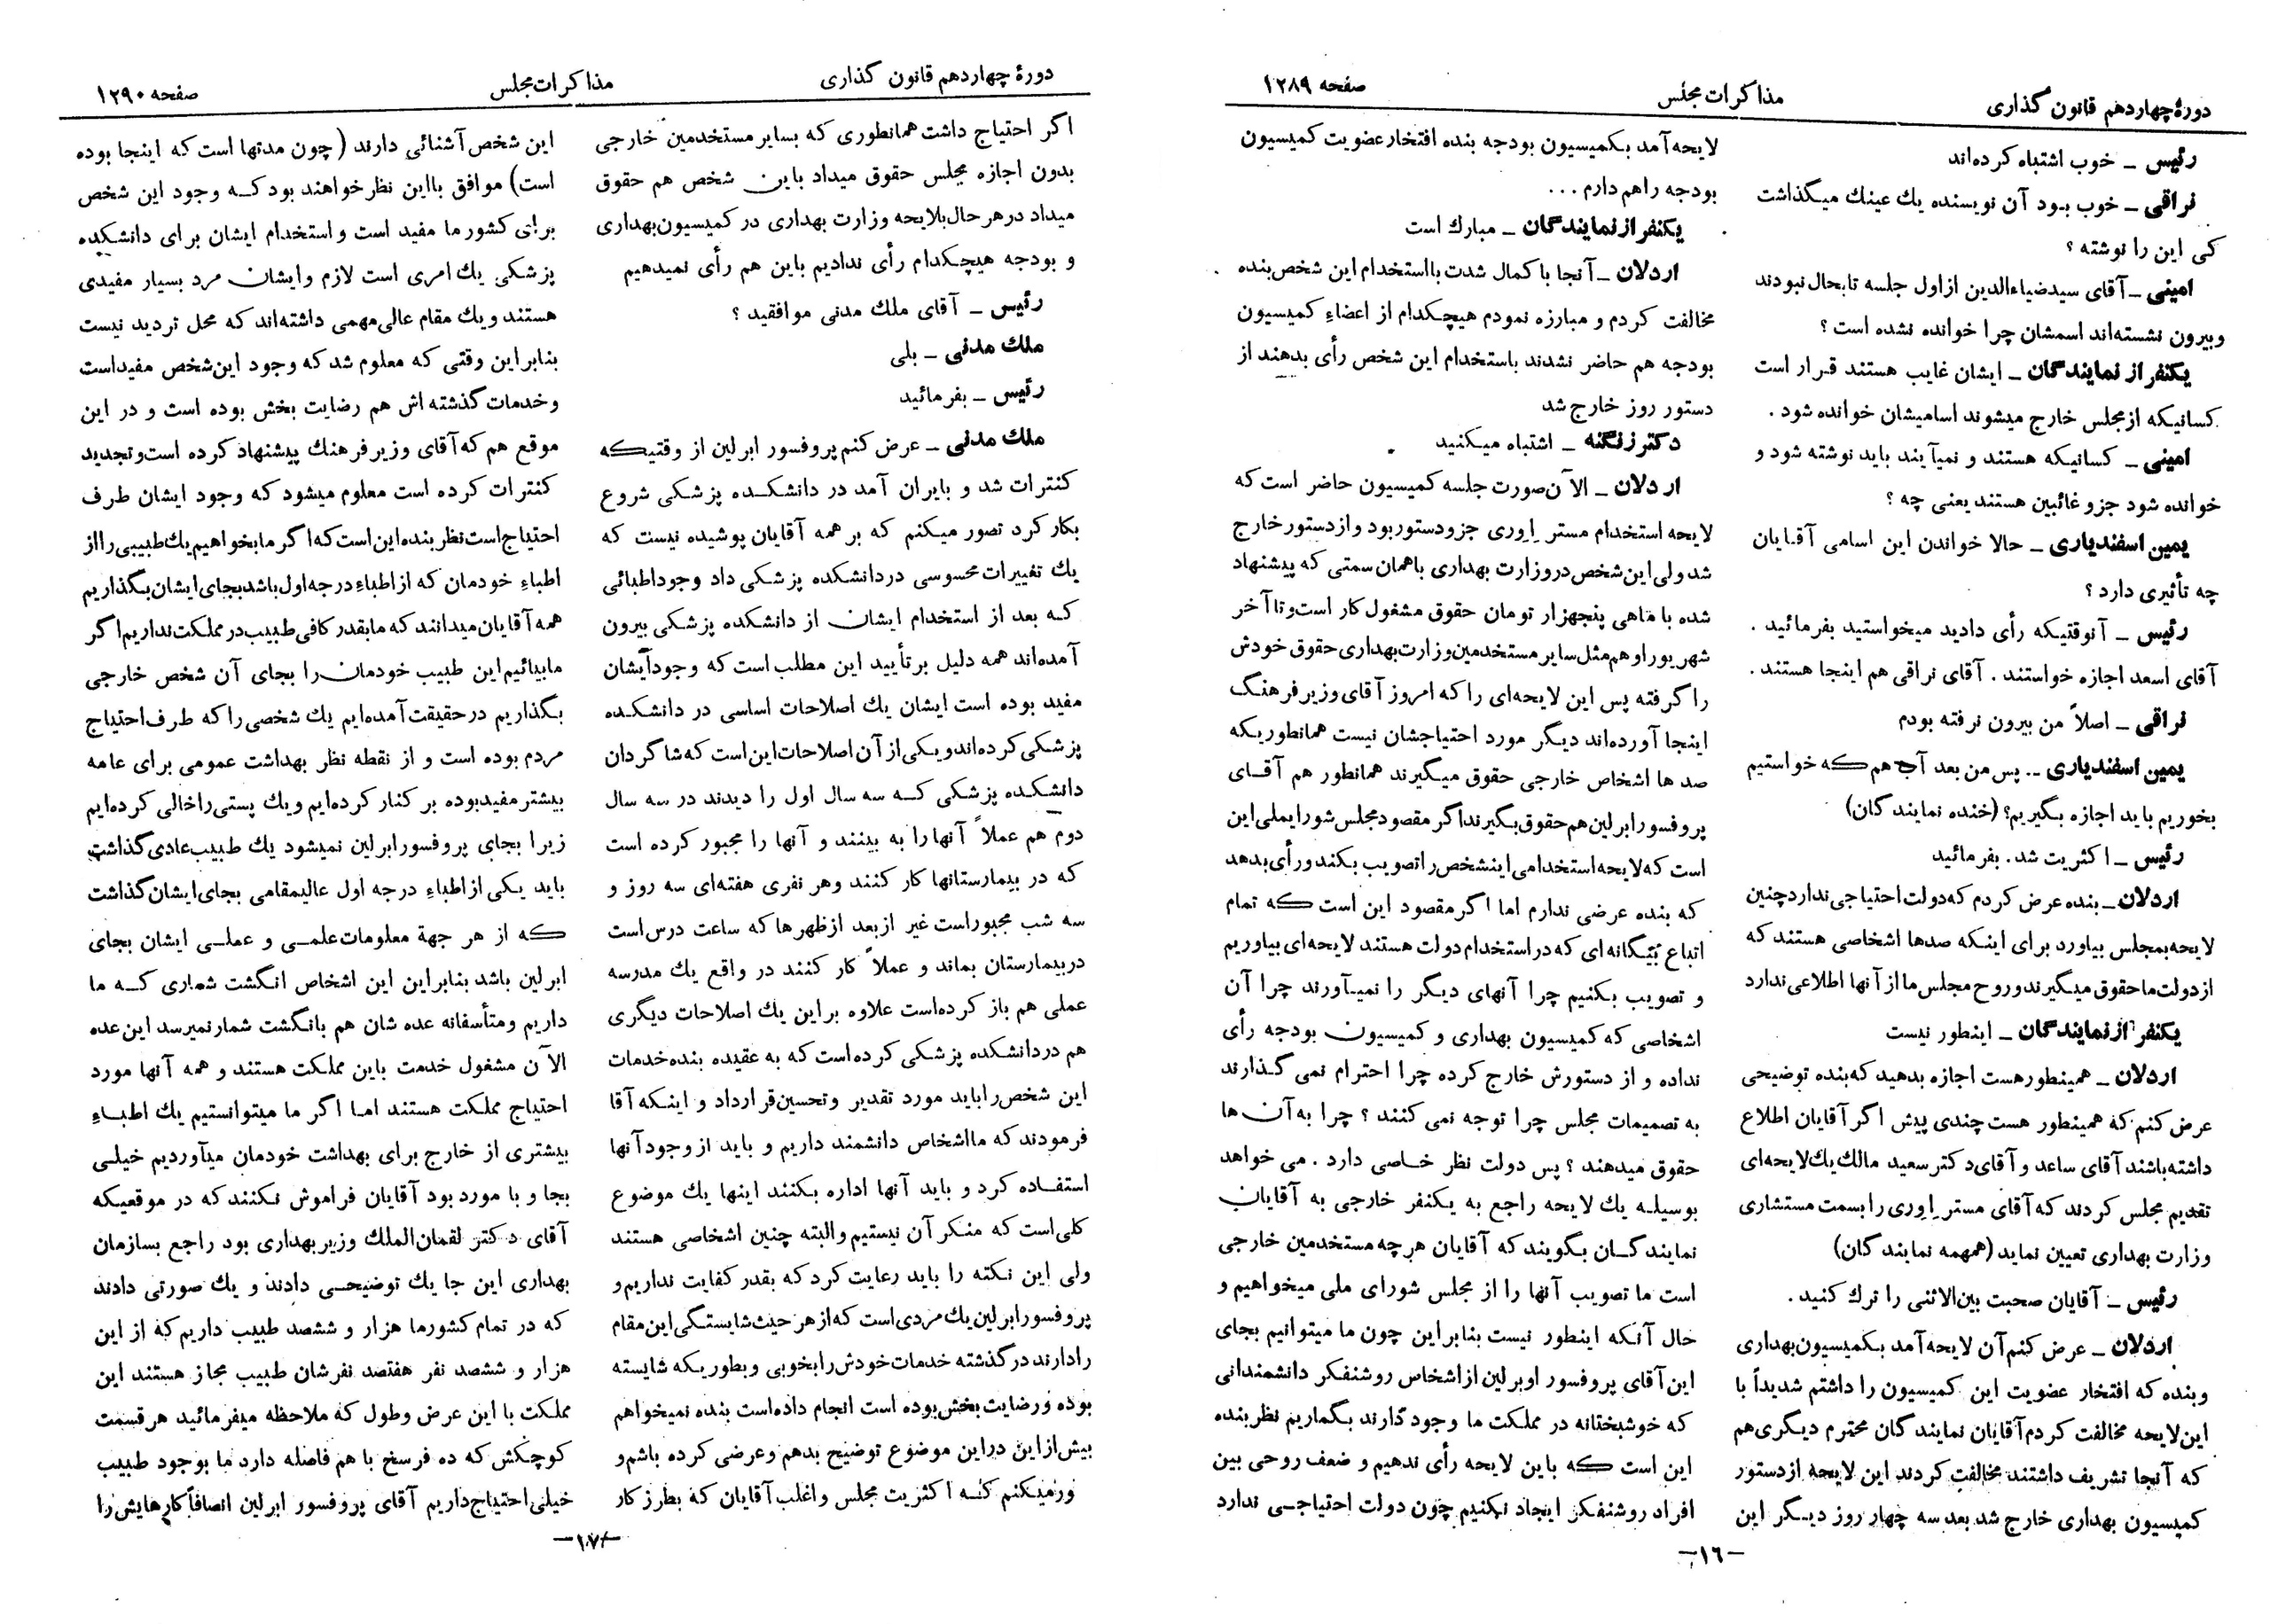 دورهٔ چهاردهم قانون گذاری
مذاکرات مجلس
صفحه ۱۲۸۹
رئیس ـ خوب اشتباه کرده‌اند
نراقی ـ خوب بود آن نویسنده یك عینك میگذاشت
کی این را نوشته ؟
امینی ـ آقای سیدضیاءالدین از اول جلسه تا بحال نبودند
و بیرون نشسته‌اند اسمشان چرا خوانده نشده است ؟
یکنفر از نمایندگان ـ ایشان غایب هستند قرار است
کسانیکه از مجلس خارج میشوند اسامیشان خوانده شود .
امینی ـ کسانیکه هستند و نمیآیند باید نوشته شود و
خوانده شود جزو غائبین هستند یعنی چه ؟
یمین اسفندیاری ـ حالا خواندن این اسامی آقایان
چه تأثیری دارد ؟
رئیس ـ آنوقتیکه رأی دادید میخواستید بفرمائید .
آقای اسعد اجازه خواستند . آقای نراقی هم اینجا هستند .
نراقی ـ اصلاً من بیرون نرفته بودم
یمین اسفندیاری ـ پس من بعد آب هم که خواستیم
بخوریم باید اجازه بگیریم؟ (خنده نمایندگان)
رئیس ـ اکثریت شد. بفرمائید
اردلان ـ بنده عرض کردم که دولت احتیاجی ندارد چنین
لایحه بمجلس بیاورد برای اینکه صدها اشخاصی هستند که
از دولت ما حقوق میگیرند و روح مجلس ما از آنها اطلاعی ندارد
یکنفر از نمایندگان ـ اینطور نیست
اردلان ـ همینطور هست اجازه بدهید که بنده توضیحی
عرض کنم که همینطور هست چندی پیش اگر آقایان اطلاع
داشته باشند آقای ساعد و آقای دکتر سعید مالك یك لایحه‌ای
تقدیم مجلس کردند که آقای مستر اِوری را بسمت مستشاری
وزارت بهداری تعیین نماید (همهمه نمایندگان)
رئیس ـ آقایان صحبت بین‌الاثنی را ترك کنید .
اردلان ـ عرض کنم آن لایحه آمد بکمیسیون بهداری
و بنده که افتخار عضویت این کمیسیون را داشتم شدیداً با
این لایحه مخالفت کردم آقایان نمایندگان محترم دیگری هم
که آنجا تشریف داشتند مخالفت کردند این لایحه از دستور
کمیسیون بهداری خارج شد بعد سه چهار روز دیگر این
لایحه آمد بکمیسیون بودجه بنده افتخار عضویت کمیسیون
بودجه را هم دارم ...
یکنفر از نمایندگان ـ مبارك است
اردلان ـ آنجا با کمال شدت با استخدام این شخص بنده
مخالفت کردم و مبارزه نمودم هیچکدام از اعضاء کمیسیون
بودجه هم حاضر نشدند باستخدام این شخص رأی بدهند از
دستور روز خارج شد
دکتر زنگنه ـ اشتباه میکنید
اردلان ـ الآن صورت جلسه کمیسیون حاضر است که
لایحه استخدام مستر اِوری جزو دستور بود و از دستور خارج
شد ولی این شخص در وزارت بهداری با همان سمتی که پیشنهاد
شده با ماهی پنجهزار تومان حقوق مشغول کار است و تا آخر
شهریور او هم مثل سایر مستخدمین وزارت بهداری حقوق خودش
را گرفته پس این لایحه‌ای را که امروز آقای وزیر فرهنگ
اینجا آورده‌اند دیگر مورد احتیاجشان نیست همانطوریکه
صدها اشخاص خارجی حقوق میگیرند همانطور هم آقای
پروفسور ابرلین هم حقوق بگیرند اگر مقصود مجلس شورایملی این
است که لایحه استخدامی اینشخص را تصویب بکند و رأی بدهد
که بنده عرضی ندارم اما اگر مقصود این است که تمام
اتباع بیگانه‌ای که در استخدام دولت هستند لایحه‌ای بیاوریم
و تصویب بکنیم چرا آنهای دیگر را نمیآورند چرا آن
اشخاصی که کمیسیون بهداری و کمیسیون بودجه رأی
نداده و از دستورش خارج کرده چرا احترام نمی گذارند
به تصمیمات مجلس چرا توجه نمی کنند ؟ چرا به آن ها
حقوق میدهند ؟ پس دولت نظر خاصی دارد . می خواهد
بوسیله یك لایحه راجع به یکنفر خارجی به آقایان
نمایندگان بگویند که آقایان هر چه مستخدمین خارجی
است ما تصویب آنها را از مجلس شورای ملی میخواهیم و
حال آنکه اینطور نیست بنابراین چون ما میتوانیم بجای
این آقای پروفسور اوبرلین از اشخاص روشنفکر دانشمندانی
که خوشبختانه در مملکت ما وجود دارند بگماریم نظر بنده
این است که باین لایحه رأی ندهیم و ضعف روحی بین
افراد روشنفکر ایجاد نکنیم چون دولت احتیاجی ندارد
ـ۱۶ـ
دورهٔ چهاردهم قانون گذاری
مذاکرات مجلس
صفحه ۱۲۹۰
اگر احتیاج داشت همانطوری که بسایر مستخدمین خارجی
بدون اجازه مجلس حقوق میداد باین شخص هم حقوق
میداد در هر حال بلایحه وزارت بهداری در کمیسیون بهداری
و بودجه هیچکدام رأی ندادیم باین هم رأی نمیدهیم
رئیس ـ آقای ملك مدنی موافقید ؟
ملك مدنی ـ بلی
رئیس ـ بفرمائید
ملك مدنی ـ عرض کنم پروفسور ابرلین از وقتیکه
کنترات شد و بایران آمد در دانشکده پزشکی شروع
بکار کرد تصور میکنم که بر همه آقایان پوشیده نیست که
یك تغییرات محسوسی در دانشکده پزشکی داد وجود اطبائی
که بعد از استخدام ایشان از دانشکده پزشکی بیرون
آمده‌اند همه دلیل بر تأیید این مطلب است که وجود ایشان
مفید بوده است ایشان یك اصلاحات اساسی در دانشکده
پزشکی کرده‌اند و یکی از آن اصلاحات این است که شاگردان
دانشکده پزشکی که سه سال اول را دیدند در سه سال
دوم هم عملاً آنها را به بینند و آنها را مجبور کرده است
که در بیمارستانها کار کنند و هر نفری هفته‌ای سه روز و
سه شب مجبور است غیر از بعد از ظهرها که ساعت درس است
در بیمارستان بماند و عملاً کار کنند در واقع یك مدرسه
عملی هم باز کرده‌است علاوه بر این یك اصلاحات دیگری
هم در دانشکده پزشکی کرده‌است که به عقیده بنده خدمات
این شخص را باید مورد تقدیر و تحسین قرار داد و اینکه آقا
فرمودند که ما اشخاص دانشمند داریم و باید از وجود آنها
استفاده کرد و باید آنها اداره بکنند اینها یك موضوع
کلی است که منکر آن نیستیم و البته چنین اشخاصی هستند
ولی این نکته را باید رعایت کرد که بقدر کفایت نداریم و
پروفسور ابرلین یك مردی است که از هر حیث شایستگی این مقام
را دارند در گذشته خدمات خودش را بخوبی و بطوریکه شایسته
بوده و رضایت بخش بوده است انجام داده‌است بنده نمیخواهم
بیش از این در این موضوع توضیح بدهم و عرضی کرده باشم و
تصور میکنم که اکثریت مجلس و اغلب آقایان که بطرز کار
این شخص آشنائی دارند (چون مدتها است که اینجا بوده
است) موافق با این نظر خواهند بود که وجود این شخص
برای کشور ما مفید است و استخدام ایشان برای دانشکده
پزشکی یك امری است لازم و ایشان مرد بسیار مفیدی
هستند و یك مقام عالی مهمی داشته‌اند که محل تردید نیست
بنابراین وقتی که معلوم شد که وجود این شخص مفید است
و خدمات گذشته اش هم رضایت بخش بوده است و در این
موقع هم که آقای وزیر فرهنك پیشنهاد کرده است و تجدید
کنترات کرده است معلوم میشود که وجود ایشان طرف
احتیاج است نظر بنده این است که اگر ما بخواهیم یك طبیبی را از
اطباء خودمان که از اطباء درجه اول باشد بجای ایشان بگذاریم
همه آقایان میدانند که ما بقدر کافی طبیب در مملکت نداریم اگر
ما بیائیم این طبیب خودمان را بجای آن شخص خارجی
بگذاریم در حقیقت آمده‌ایم یك شخصی را که طرف احتیاج
مردم بوده است و از نقطه نظر بهداشت عمومی برای عامه
بیشتر مفید بوده بر کنار کرده‌ایم و یك پستی را خالی کرده‌ایم
زیرا بجای پروفسور ابرلین نمیشود یك طبیب عادی گذاشت
باید یکی از اطباء درجه اول عالیمقامی بجای ایشان گذاشت
که از هر جهة معلومات علمی و عملی ایشان بجای
ابرلین باشد بنابراین این اشخاص انگشت شماری که ما
داریم و متأسفانه عده شان هم بانگشت شمار نمیرسد این عده
الآن مشغول خدمت باین مملکت هستند و همه آنها مورد
احتیاج مملکت هستند اما اگر ما میتوانستیم یك اطباء
بیشتری از خارج برای بهداشت خودمان میآوردیم خیلی
بجا و با مورد بود آقایان فراموش نکنند که در موقعیکه
آقای دکتر لقمان‌الملك وزیر بهداری بود راجع بسازمان
بهداری این جا یك توضیحی دادند و یك صورتی دادند
که در تمام کشور ما هزار و ششصد طبیب داریم که از این
هزار و ششصد نفر هفتصد نفرشان طبیب مجاز هستند این
مملکت با این عرض و طول که ملاحظه میفرمائید هر قسمت
کوچکش که ده فرسخ با هم فاصله دارد ما بوجود طبیب
خیلی احتیاج داریم آقای پروفسور ابرلین انصافاً کارهایش را
ـ۱۷ـ